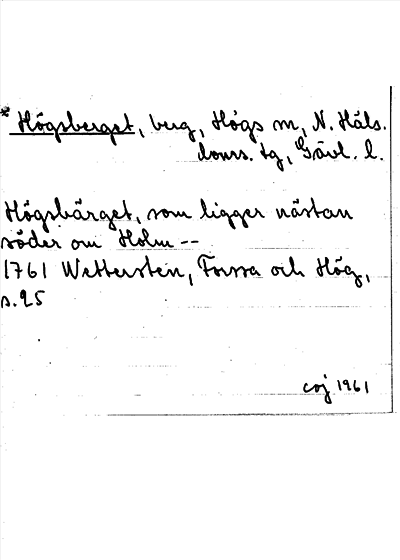 * Högsberget, berg, Högs sn, N. Häls.
doms. tg, Gävl. l.
Högsbärget, som ligger nästan
söder om Holm --
1761 Wettersten, Forssa och Hög,
s. 25
coj 1961